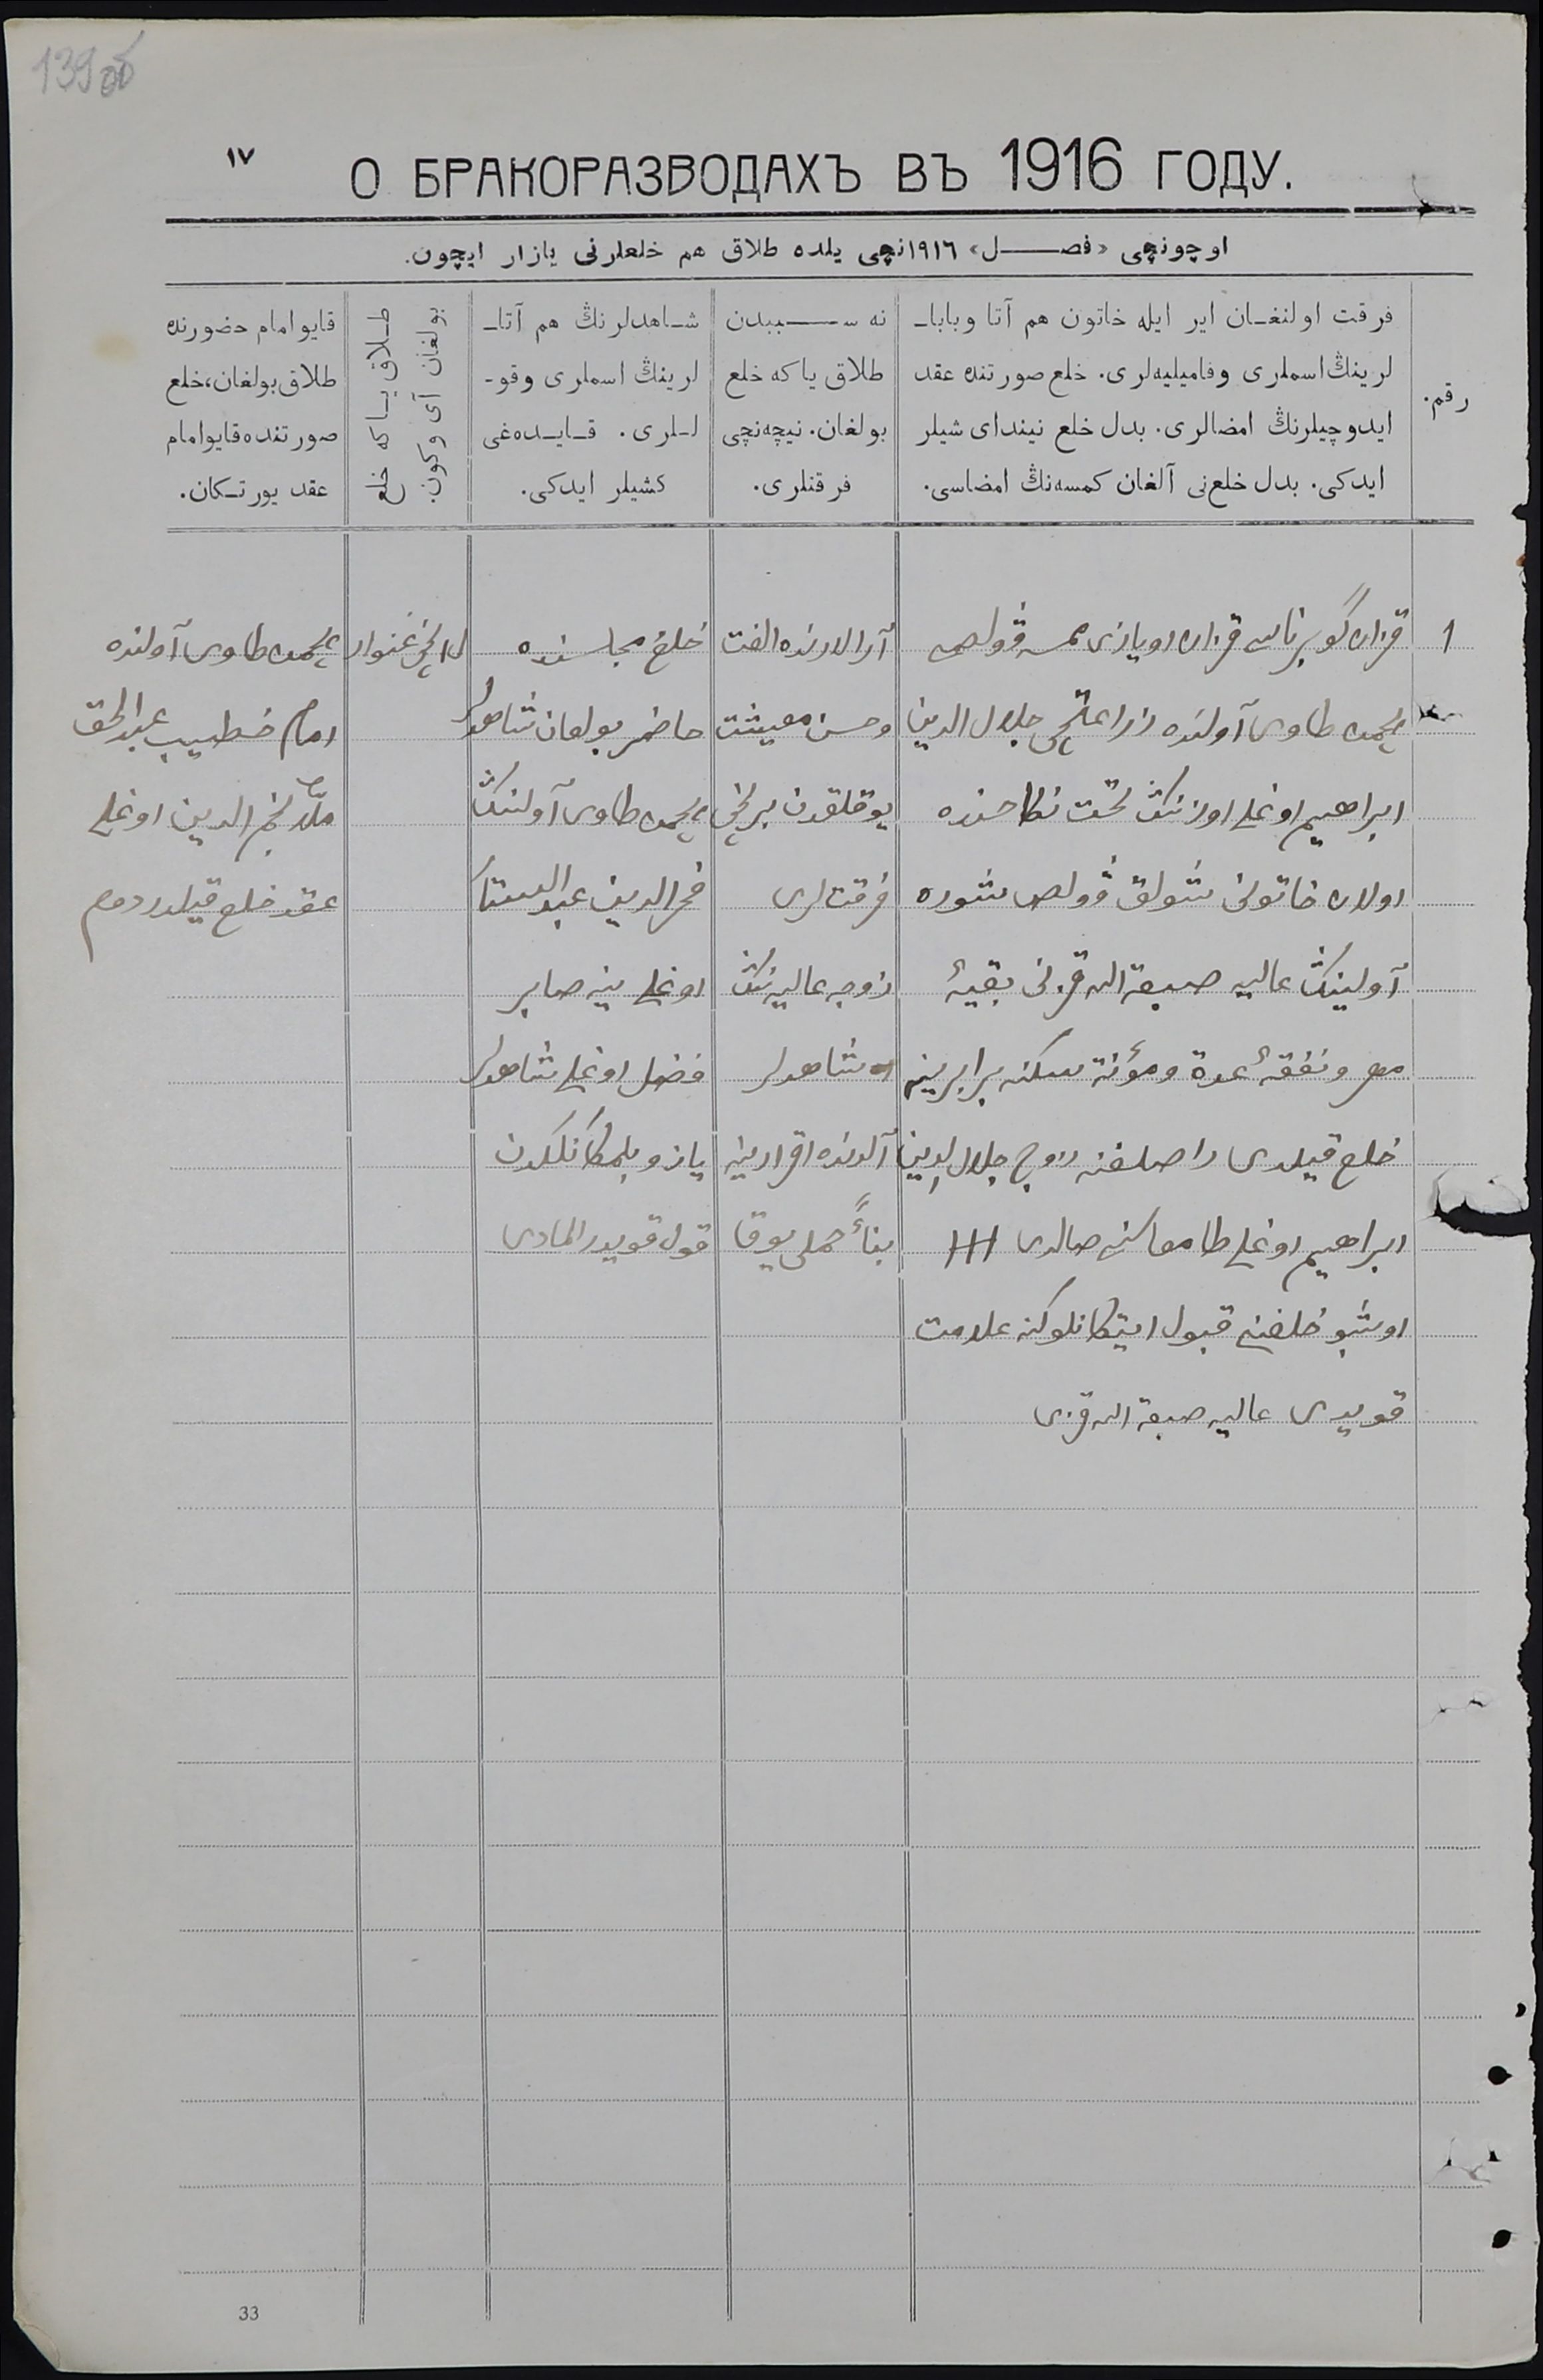 139 об
١٧
О БРАКОРАЗВОДАХЪ ВЪ 1916 ГОДУ.
اوچونچی «فصـــل» ١٩١٦نچی یلده طلاق هم خلعلرنی یازار ایچون.
رقم.
فرقت اولنغـان ایر ایله خاتون هم آتا وبابا
لرینڭ اسملری وفامیلیه‌لری. خلع صورتنده عقد
ایدوچیلرنڭ امضالری. بدل خلع نیندای شیلر
ایدکی. بدل خلع‌نی آلغان کمسه‌نڭ امضاسی.
نه ســـببدن
طلاق یاکه خلع
بولغان. نیچه‌نچی
فرقتلری.
شـاهدلرنڭ هم آتاـ
لرینڭ اسملری وقوـ
لـلری. قـایـده‌غی
کشیلر ایدکی.
طـلاق یـاکه خلع
بولغان آی وکون.
قایو امام حضورنده
طلاق بولغان، خلع
صورتنده قایو امام
عقد یورتـکان.
1
قزان گوبرناسی قزان اویازی
طاوی آولنده زراعتچی جلال الدین
ابراهیم اوغلی اوزننڭ تحت نکاحنده
اولان خاتونی شولوق ڤولص شوره
آولینڭ عالیه صبغة الله قزنی بقیهٔ
مهر ونفقهٔ عدة ومؤنة سکنه برابرینه
خلع قیلدی زوج جلال الدین
ابراهیم اوغلی طامغاسنی صالدی ΙΗΙ
اوشبو خلعنی قبول ایتکانلوکنه علامت
قویدی عالیه صبغة الله قزی
آرالارنده الفت
وحسن معیشت
یوقلقدن برنچی
فرقتلری
زوجه عالیه‌نڭ
شاهدلر
آلدنده اقرارینه
بناءً حملی یوق
خلع مجلسنده
حاضر بولغان شاهدلر
طاوی آولننڭ
فخرالدین عبدالستار
اوغلی ینه صابر
فضل اوغلی شاهدلر
یازو بلمکانلکدن
قول قویدرالمادی
غنوار
طاوی آولنده
امام خطیب عبدالحق
ملّا نجم الدین اوغلی
عقد خلع قیلدردم
33